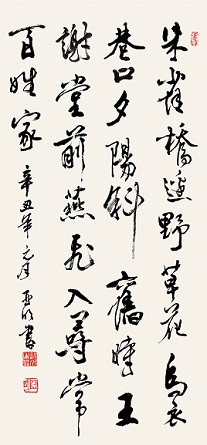 朱雀橋邊野草花烏衣
巷口夕陽斜舊時王
謝堂前燕飛入尋常
百姓家
辛丑年元月 書